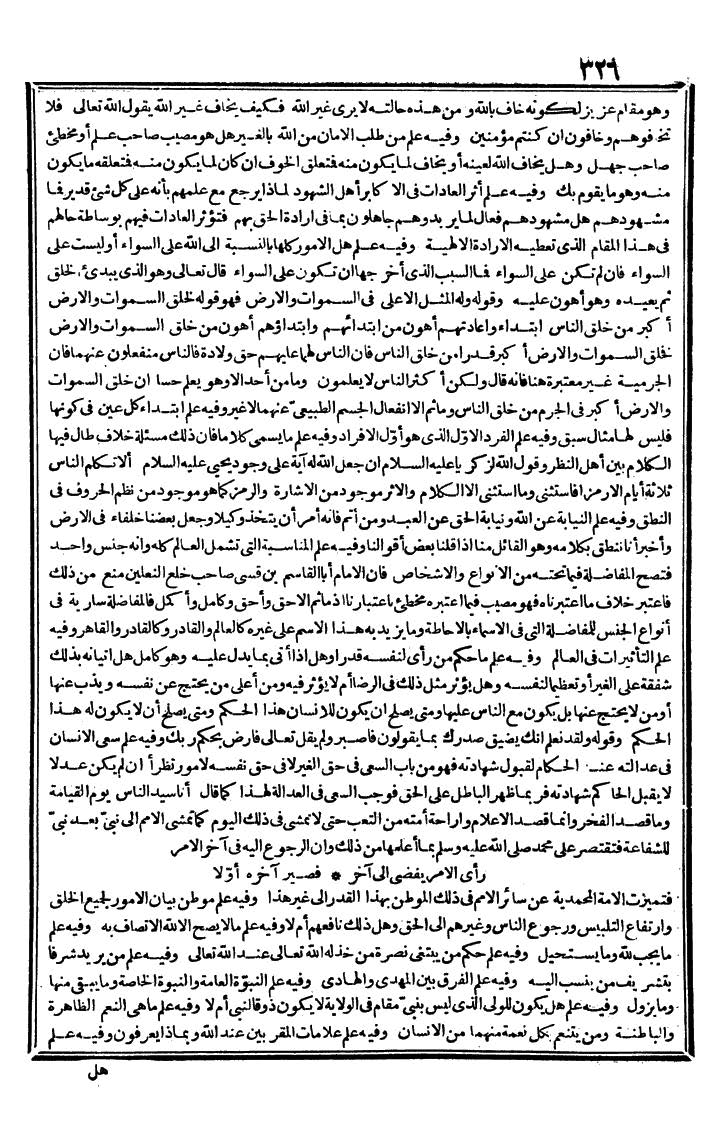 ٣٢٦
وهو مقام عزيز لكونه خاف بالله ومن هذه حالته لا يرى غير الله فكيف يخاف غير الله يقول الله تعالى فلا
تخافوهم وخافون ان كنتم مؤمنين وفيه علم من طلب الامان من الله بالغير هل هو مصيب صاحب علم أو مخطئ
صاحب جهل وهل يخاف الله لعينه أو يخاف لما يكون منه فتعلق الخوف ان كان لما يكون منه فتعلقه ما يكون
منه وهو ما يقوم بك وفيه علم أثر العادات فى الاكابر أهل الشهود لماذا يرجع مع علمهم بأنه على كل شئ قدير فما
مشهودهم هل مشهودهم فعال لما يريد وهم جاهلون بما فى ارادة الحق بهم فتؤثر العادات فيهم بوساطة حالهم
فى هذا المقام الذى تعطيه الارادة الالهية وفيه علم هل الامور كلها بالنسبة الى الله على السواء أو ليست على
السواء فان لم تكن على السواء فما السبب الذى أخرجها ان تكون على السواء قال تعالى وهو الذى يبدئ الخلق
ثم يعيده وهو أهون عليه وقوله وله المثل الاعلى فى السموات والارض فهو قوله لخلق السموات والارض
أكبر من خلق الناس ابتداء واعادتهم أهون من ابتدائهم وابتداؤهم أهون من خلق السموات والارض
فخلق السموات والارض أكبر قدرا من خلق الناس فان الناس لهما عليهم حق ولادة فالناس منفعلون عنهما فان
الجرمية غير معتبرة هنا فانه قال ولكن أكثر الناس لا يعلمون وما من أحد الا وهو يعلم حسا ان خلق السموات
والارض أكبر فى الجرم من خلق الناس وما ثم الا انفعال الجسم الطبيعىّ عنهما لا غير وفيه علم ابتداء كل عين فى كونها
فليس لها مثال سبق وفيه علم الفرد الاوّل الذى هو أوّل الافراد وفيه علم ما يسمى كلاما فان ذلك مسئلة خلاف طال فيها
الكلام بين أهل النظر وقول الله لزكريا عليه السلام ان جعل الله له آية على وجود يحيى عليه السلام ألا تكلم الناس
ثلاثة أيام الا رمزا فاستثنى وما استثنى الا الكلام والاثر موجود من الاشارة والرمز كما هو موجود من نظم الحروف فى
النطق وفيه علم النيابة عن الله ونيابة الحق عن العبد ومن أتم فانه أمر أن يتخذ وكيلا وجعل بعضنا خلفاء فى الارض
وأخبر أنا ننطق بكلامه وهو القائل منا اذا قلنا بعض أقوالنا وفيه علم المناسبة التى تشمل العالم كله وانه جنس واحد
فتصح المفاضلة فيما تحته من الانواع والاشخاص فان الامام أبا القاسم بن قسى صاحب خلع النعلين منع من ذلك
فاعتبر خلاف ما اعتبرناه فهو مصيب فيما اعتبره مخطئ باعتبارنا اذ ما ثم الا حق وأحق وكامل وأكمل فالمفاضلة سارية فى
أنواع الجنس للمفاضلة التى فى الاسماء بالاحاطة وما يزيد به هذا الاسم على غيره كالعالم والقادر وكالقادر والقاهر وفيه
علم التأثيرات فى العالم وفيه علم ما حكم من رأى لنفسه قدرا وهل اذا أتى بما يدل عليه وهو كامل هل اتيانه بذلك
شفقة على الغير أو تعظيما لنفسه وهل يؤثر مثل ذلك فى الرضا أم لا يؤثر فيه ومن أعلى من يحتج عن نفسه ويذب عنها
أو من لا يحتج عنها بل يكون مع الناس عليها ومتى يصلح ان يكون للانسان هذا الحكم ومتى يصلح أن لا يكون له هذا
الحكم وقوله ولقد نعلم انك يضيق صدرك بما يقولون فاصبر ولم يقل تعالى فارض بحكم ربك وفيه علم سعى الانسان
فى عدالته عند الحكام لقبول شهادته فهو من باب السعى فى حق الغير لا فى حق نفسه لا مور تطرأ ان لم يكن عدلا
لا يقبل الحاكم شهادته فربما ظهر الباطل على الحق فوجب السعى فى العدالة لهذا كما قال أنا سيد الناس يوم القيامة
وما قصد الفخر وانما قصد الاعلام واراحة أمته من التعب حتى لا تمشى فى ذلك اليوم كما تمشى الامم الى نبىّ بعد نبىّ
للشفاعة فتقتصر على محمد صلى الله عليه وسلم بما أعلمها من ذلك وان الرجوع اليه فى آخر الامر
رأى الامر يفضى الى آخر * فصير آخره أوّلا
فتميزت الامة المحمدية عن سائر الامم فى ذلك الموطن بهذا القدر الى غير هذا وفيه علم موطن بيان الامور لجميع الخلق
وارتفاع التلبيس ورجوع الناس وغيرهم الى الحق وهل ذلك نافعهم أم لا وفيه علم ما لا يصح الا لله الاتصاف به وفيه علم
ما يجب لله وما يستحيل وفيه علم حكم من يبتغى نصرة من خذله الله تعالى عند الله تعالى وفيه علم من يريد شرفا
بتشريف من ينسب اليه وفيه علم الفرق بين المهدى والهادى وفيه علم النبوّة العامة والنبوة الخاصة وما يبقى منها
وما يزول وفيه علم هل يكون للولى الذى ليس بنبىّ مقام فى الولاية لا يكون ذوقا لنبى أم لا وفيه علم ما هى النعم الظاهرة
والباطنة ومن يتنعم بكل نعمة منهما من الانسان وفيه علم علامات المقربين عند الله وبماذا يعرفون وفيه علم
هل